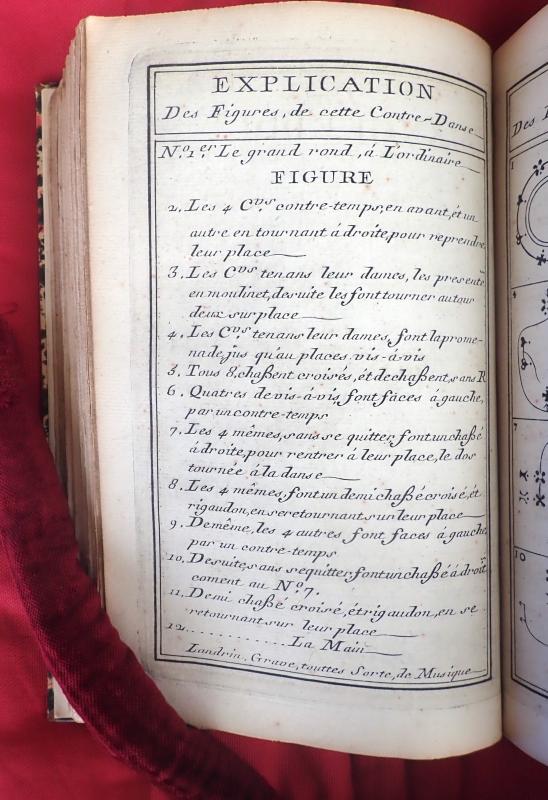 EXPLICATION
Des Figures, de cette Contre-Danse
N.º 1.er Le grand rond, á L'ordinaire
FIGURE
2. Les 4 C.vrs contre-temps, en avant, ét un
autre en tournant á droite, pour reprendre
leur place
3. Les C.vrs tenans leur dames, les presente
en moulinet, desuite les font tourner autour
deux sur place
4. Les C.vrs tenans leur dames, font la prome-
nade, jus qu'au places vis-á-vis
5. Tous 8. chaßent croisés, ét dechaßent, sans R
6. Quatres de vis-a-vis, font fáces á gauche,
par un contre-temps
7. Les 4 mêmes, sans se quitter, font un chaßé
á droite, pour rentrer á leur place, le dos
tournée á la danse
8. Les 4 mêmes, font un demi chaßé croisé, ét
rigaudon, en se retournant sur leur place
9. De même, les 4 autres font faces á gauche,
par un contre-temps
10. De suite, sans se quitter, font un chaßé á droit
coment au Nº. 7.
11. Demi chaßé croisé, ét rigaudon, en se
retournant sur leur place
12. . . . . . . . . . . . . La Main
Landrin, Grave, touttes Sorte, de Musique
Des
1
4
7
10